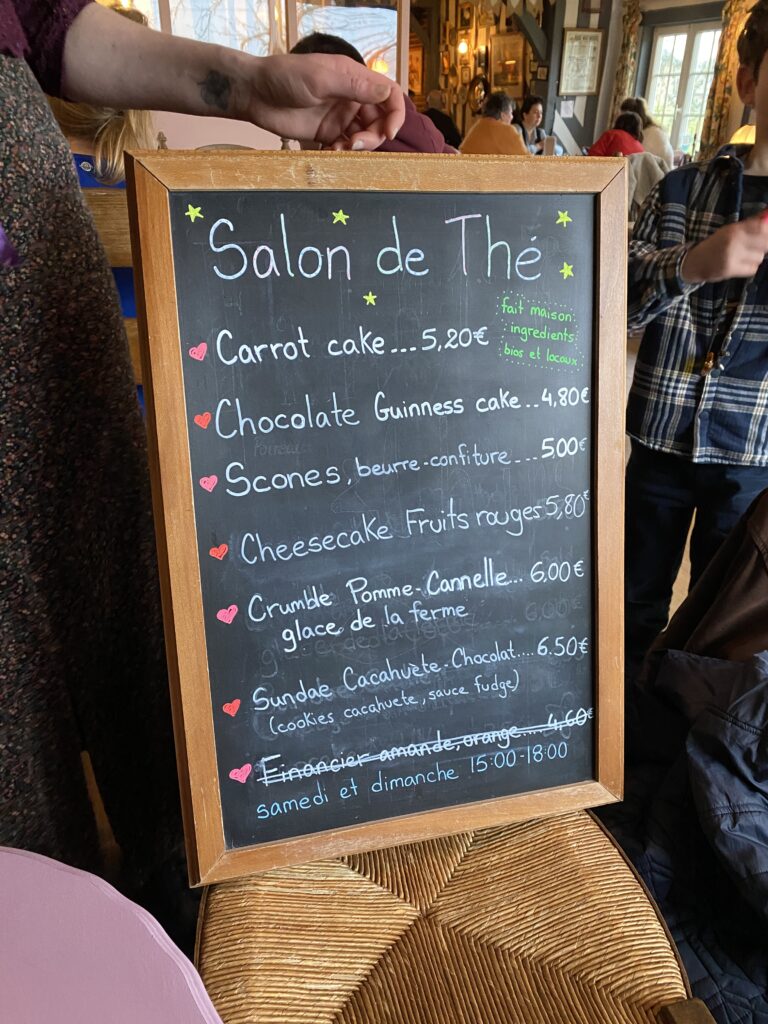 Salon de Thé
fait maison
ingredients
bios et locaux
Carrot cake...5,20€
Chocolate Guinness cake..4,80€
Scones, beurre-confiture....5,00€
Cheesecake Fruits rouges 5,80€
Crumble Pomme-Cannelle... 6.00€
glace de la ferme
Sundae Cacahuète-Chocolat.... 6.50€
(cookies cacahuete, sauce fudge)
Financier amande, orange.... 4,60€
samedi et dimanche 15:00-18:00